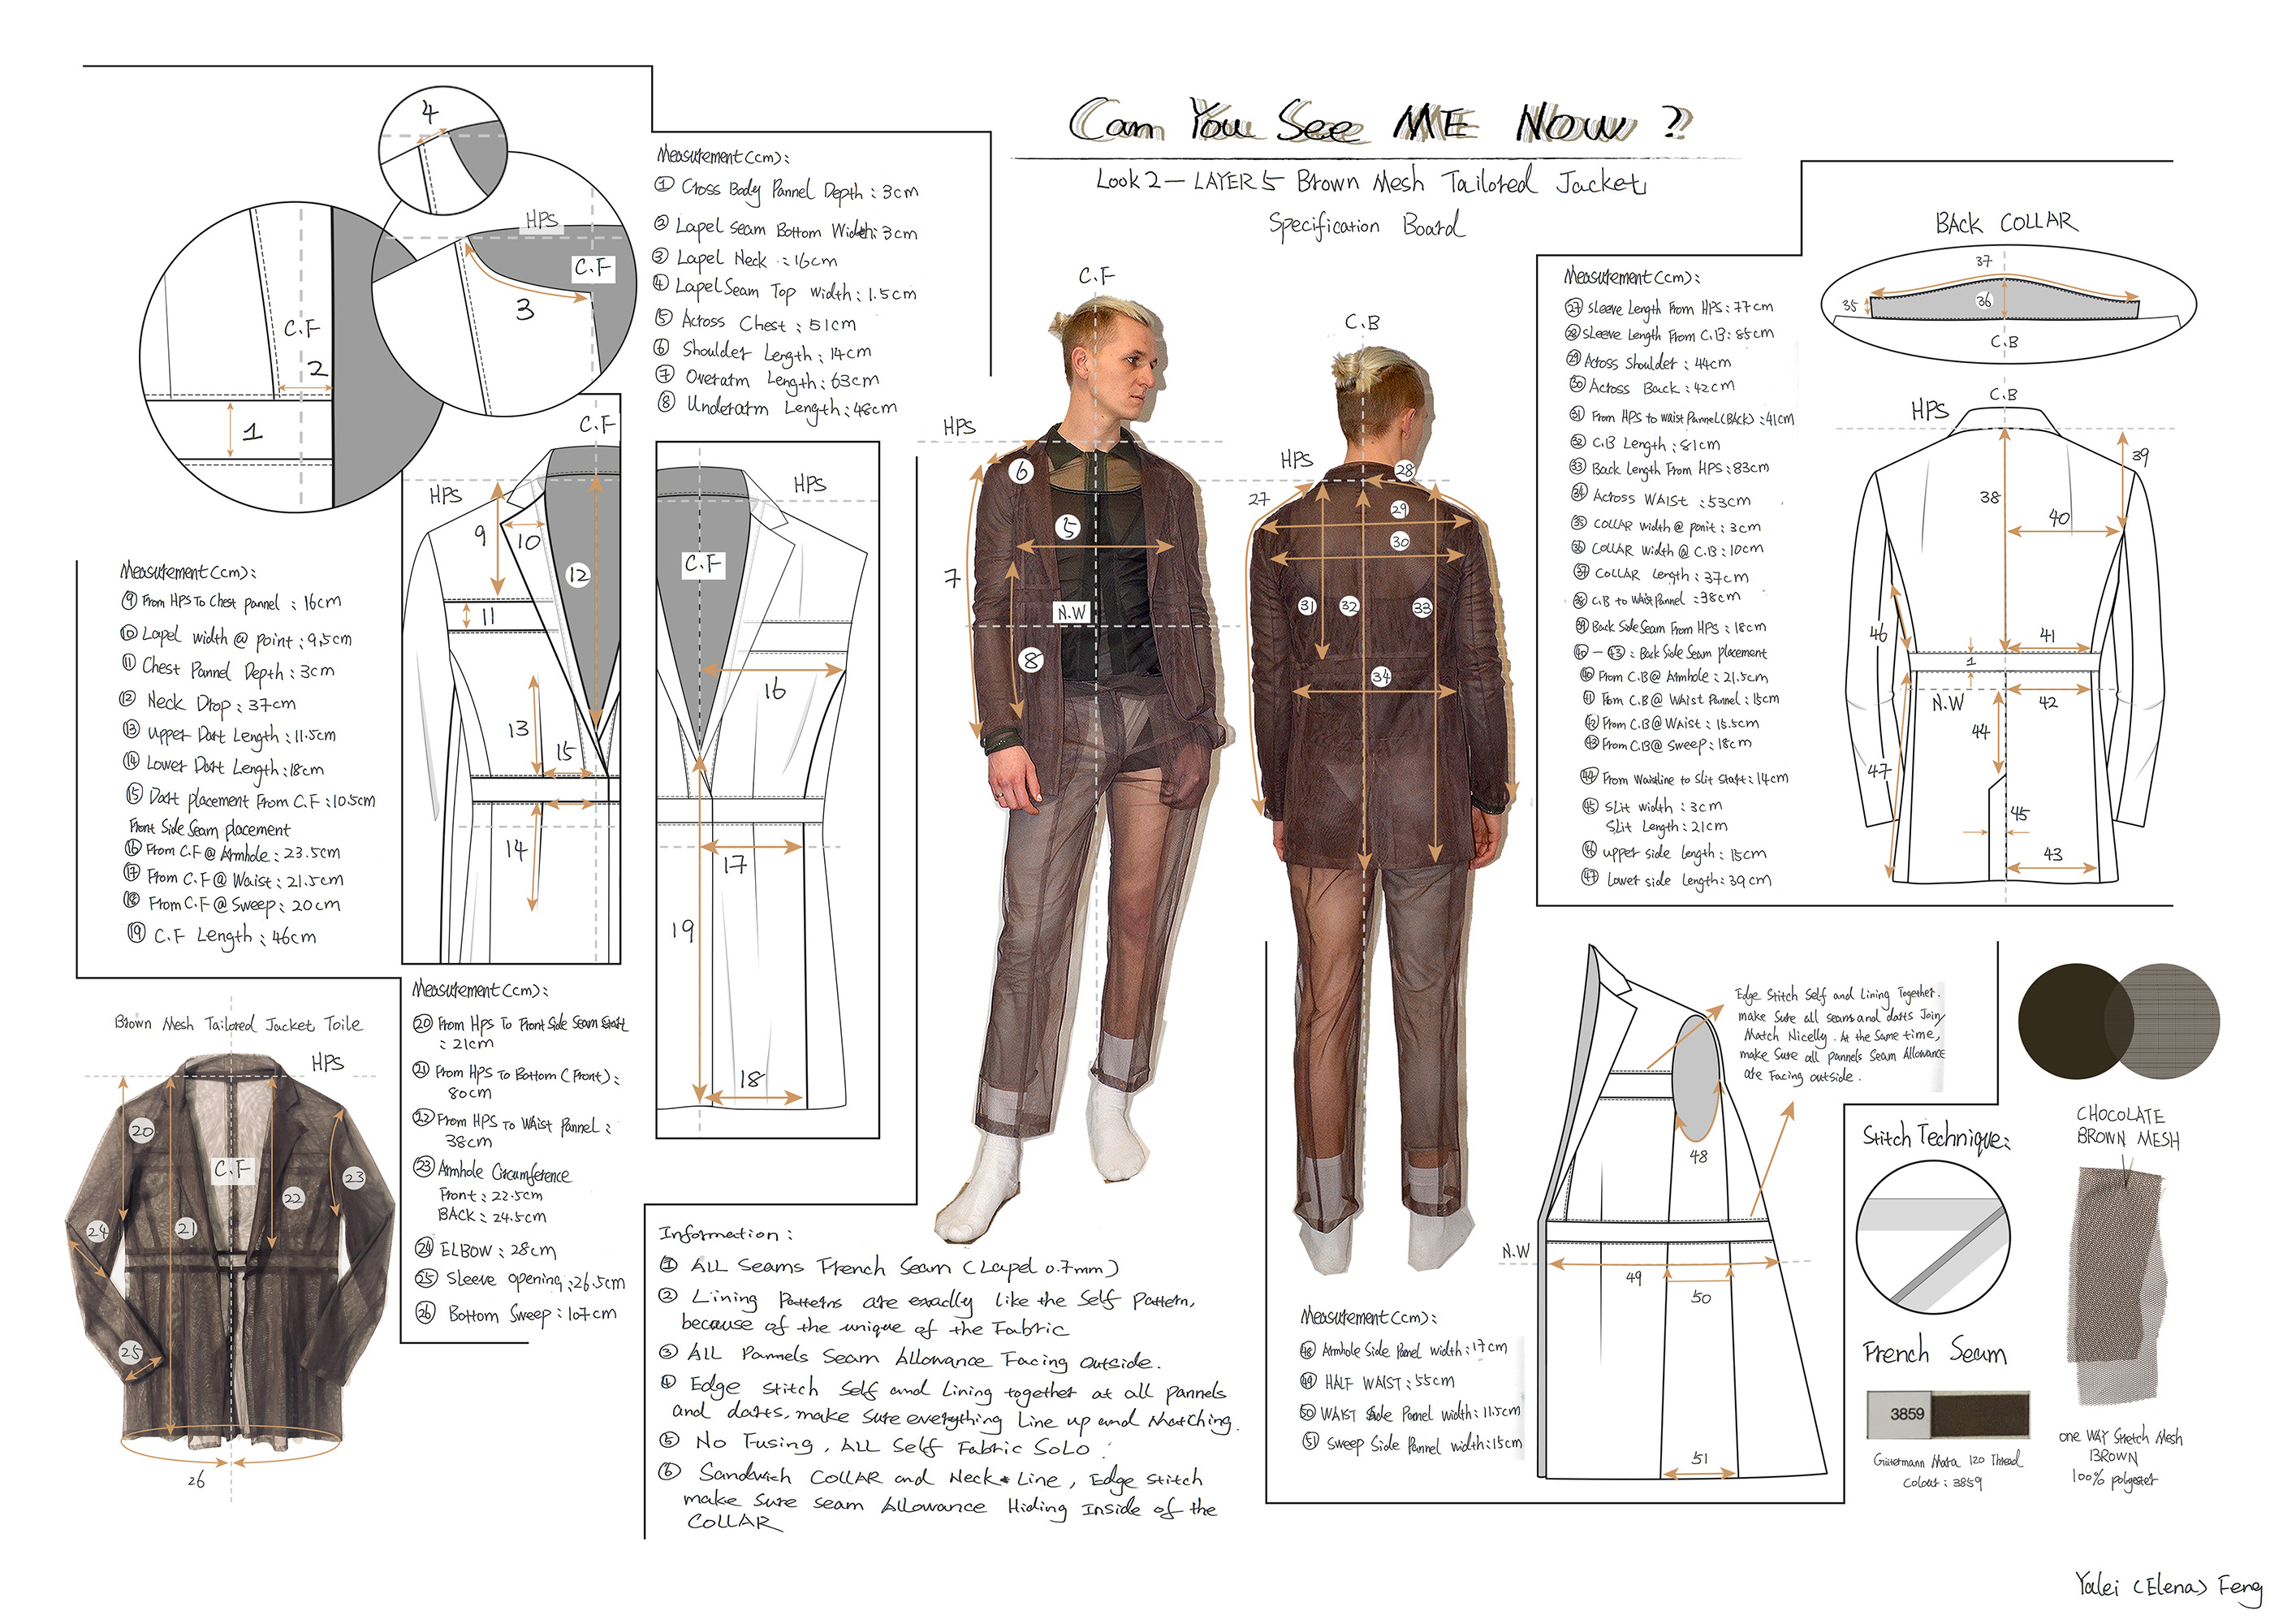 Can You See ME Now ?
Look 2 — LAYER 5 Brown Mesh Tailored Jacket
Specification Board
4
HPS
C.F
3
C.F
2
1
Measurement (cm) :
① Cross Body Pannel Depth : 3cm
② Lapel Seam Bottom Width : 3cm
③ Lapel Neck : 16cm
④ Lapel Seam Top Width : 1.5cm
⑤ Across Chest : 51cm
⑥ Shoulder Length : 14cm
⑦ Overarm Length : 63cm
⑧ Underarm Length : 48cm
C.F
HPS
9
10
12
11
13
15
14
HPS
C.F
16
17
19
18
Measurement (cm) :
⑨ From HPS To Chest pannel : 16cm
⑩ Lapel width @ point : 9.5cm
⑪ Chest Pannel Depth : 3cm
⑫ Neck Drop : 37cm
⑬ Upper Dart Length : 11.5cm
⑭ Lower Dart Length : 18cm
⑮ Dart placement From C.F : 10.5cm
Front Side Seam placement
⑯ From C.F @ Armhole : 23.5cm
⑰ From C.F @ Waist : 21.5cm
⑱ From C.F @ Sweep : 20cm
⑲ C.F Length : 46cm
Brown Mesh Tailored Jacket Toile
HPS
20
C.F
22
23
24
21
25
26
Measurement (cm) :
⑳ From Hps To Front Side Seam Start
: 21cm
㉑ From HPS To Bottom (Front) :
80cm
㉒ From HPS To WAist Pannel :
38cm
㉓ Armhole Circumference
Front : 22.5cm
BACK : 24.5cm
㉔ ELBOW : 28cm
㉕ Sleeve opening : 26.5cm
㉖ Bottom Sweep : 107cm
C.F
HPS
6
5
7
N.W
8
C.B
HPS
28
27
29
30
31
32
33
34
Information :
① ALL Seams French Seam (Lapel 0.7mm)
② Lining Patterns are exactly like the Self pattern,
because of the unique of the Fabric
③ ALL Pannels Seam Allowance Facing outside.
④ Edge stitch Self and Lining together at all pannels
and darts, make sure everything Line up and Matching.
⑤ No Fusing, ALL Self Fabric SoLo .
⑥ Sandwich COLLAR and Neck Line, Edge Stitch
make sure seam Allowance Hiding Inside of the
COLLAR
Measurement (cm) :
㉗ Sleeve Length From HPS : 77cm
㉘ Sleeve Length From C.B : 85cm
㉙ Across Shoulder : 44cm
㉚ Across Back : 42cm
㉛ From HPS to Waist Pannel (BACK) : 41cm
㉜ C.B Length : 81cm
㉝ Back Length From HPS : 83cm
㉞ Across WAIST : 53cm
㉟ COLLAR Width @ ponit : 3cm
㊱ COLLAR Width @ C.B : 10cm
㊲ COLLAR Length : 37cm
㊳ C.B to Waist Pannel : 38cm
㊴ Back Side Seam From HPS : 18cm
㊵ — ㊸ : Back Side Seam placement
㊵ From C.B @ Armhole : 21.5cm
㊶ From C.B @ Waist Pannel : 15cm
㊷ From C.B @ Waist : 15.5cm
㊸ From C.B @ Sweep : 18cm
㊹ From Waistline to Slit Start : 14cm
㊺ Slit width : 3cm
Slit Length : 21cm
㊻ upper side length : 15cm
㊼ Lower side Length : 39cm
BACK COLLAR
37
35
36
C.B
C.B
HPS
39
38
40
46
41
1
N.W
42
44
47
45
43
Edge Stitch Self and Lining Together.
make Sure all seams and darts Join
Match Nicelly. At the Same time,
make Sure all pannels Seam Allowance
are Facing outside.
48
N.W
49
50
51
Measurement (cm) :
㊽ Armhole Side Panel width : 17cm
㊾ HALF WAIST : 55cm
㊿ WAIST Side Pannel width : 11.5cm
51 Sweep Side Pannel width : 15cm
Stitch Technique :
French Seam
3859
Gütermann Mara 120 Thread
Colour : 3859
CHOCOLATE
BROWN MESH
one WAY Stretch Mesh
BROWN
100% polyester
Yalei (Elena) Feng